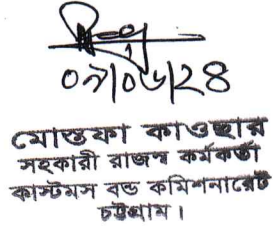 ০৯/০৬/২৪
মোস্তফা কাওছার
সহকারী রাজস্ব কর্মকর্তা
কাস্টমস বন্ড কমিশনারেট
চট্টগ্রাম।